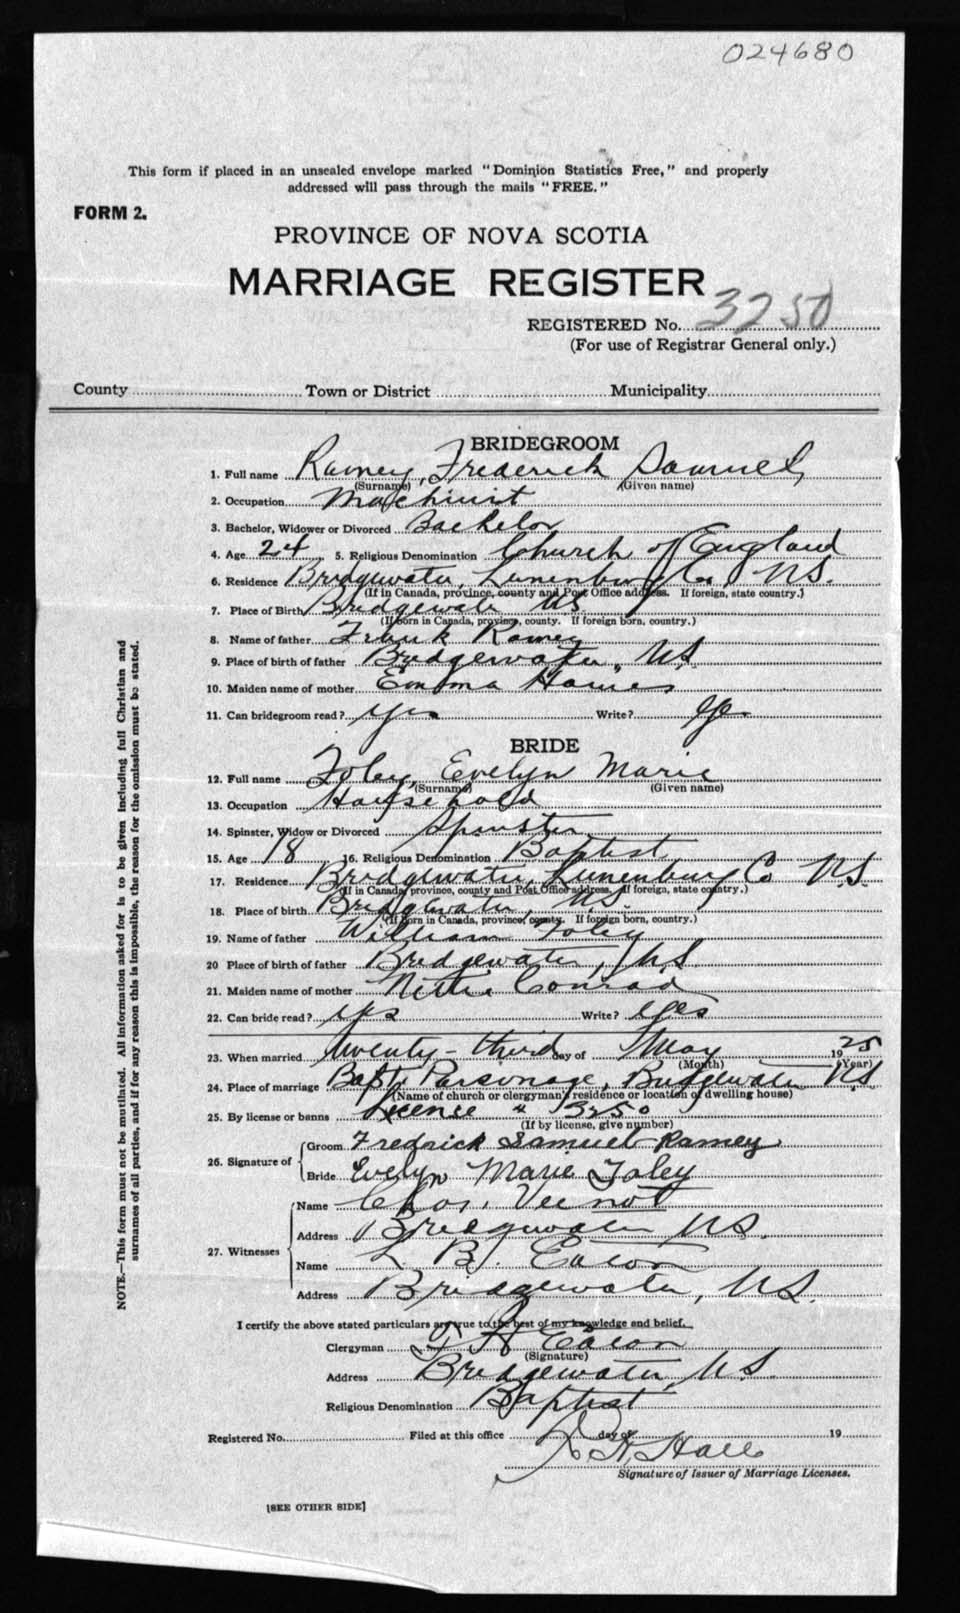 024680
This form if placed in an unsealed envelope marked "Dominion Statistics Free," and properly
addressed will pass through the mails "FREE."
FORM 2.
PROVINCE OF NOVA SCOTIA
MARRIAGE REGISTER
REGISTERED No. 3250
(For use of Registrar General only.)
County Town or District Municipality
BRIDEGROOM
1. Full name Ramey, Frederick Samuel,
(Surname) (Given name)
2. Occupation Machinist
3. Bachelor, Widower or Divorced Bachelor
4. Age 24 5. Religious Denomination Church of England
6. Residence Bridgewater, Lunenburg Co, N.S.
(If in Canada, province, county and Post Office address. If foreign, state country.)
7. Place of Birth Bridgewater NS
(If born in Canada, province, county. If foreign born, country.)
8. Name of father Frank Ramey
9. Place of birth of father Bridgewater, N.S.
10. Maiden name of mother Emma
11. Can bridegroom read? yes Write? yes
BRIDE
12. Full name Foley, Evelyn Marie
(Surname) (Given name)
13. Occupation Household
14. Spinster, Widow or Divorced Spinster
15. Age 18 16. Religious Denomination Baptist
17. Residence Bridgewater, Lunenburg Co N.S.
(If in Canada, province, county and Post Office address. If foreign, state country.)
18. Place of birth Bridgewater, N.S.
(If born in Canada, province, county. If foreign born, country.)
19. Name of father William Foley
20 Place of birth of father Bridgewater, N.S
21. Maiden name of mother Nettie Conrad
22. Can bride read? yes Write? yes
23. When married twenty-third day of May 1925
(Month) (Year)
24. Place of marriage Bapt. Parsonage, Bridgewater N.S
(Name of church or clergyman's residence or location of dwelling house)
25. By license or banns License # 3250
(If by license, give number)
26. Signature of
Groom Fredrick Samuel Ramey
Bride Evelyn Marie Foley
27. Witnesses
Name Chas. Veinot
Address Bridgewater N.S.
Name L B. Eaton
Address Bridgewater, N.S.
I certify the above stated particulars are true to the best of my knowledge and belief.
Clergyman Eaton
(Signature)
Address Bridgewater, N.S.
Religious Denomination Baptist
Registered No. Filed at this office day of 19
Hall
Signature of Issuer of Marriage Licenses.
[SEE OTHER SIDE]
NOTE.—This form must not be mutilated. All information asked for is to be given including full Christian and
surnames of all parties, and if for any reason this is impossible, the reason for the omission must be stated.